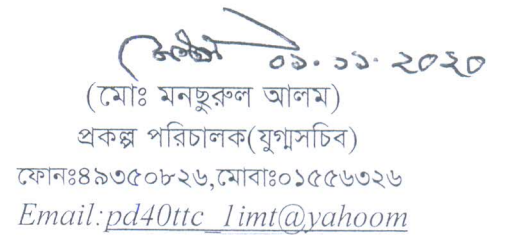 ০১.১১.২০২০
(মোঃ মনছুরুল আলম)
প্রকল্প পরিচালক(যুগ্মসচিব)
ফোনঃ৪৯৩৫০৮২৬,মোবাঃ০১৫৫৬৩২৬
Email:pd40ttc_1imt@yahoom